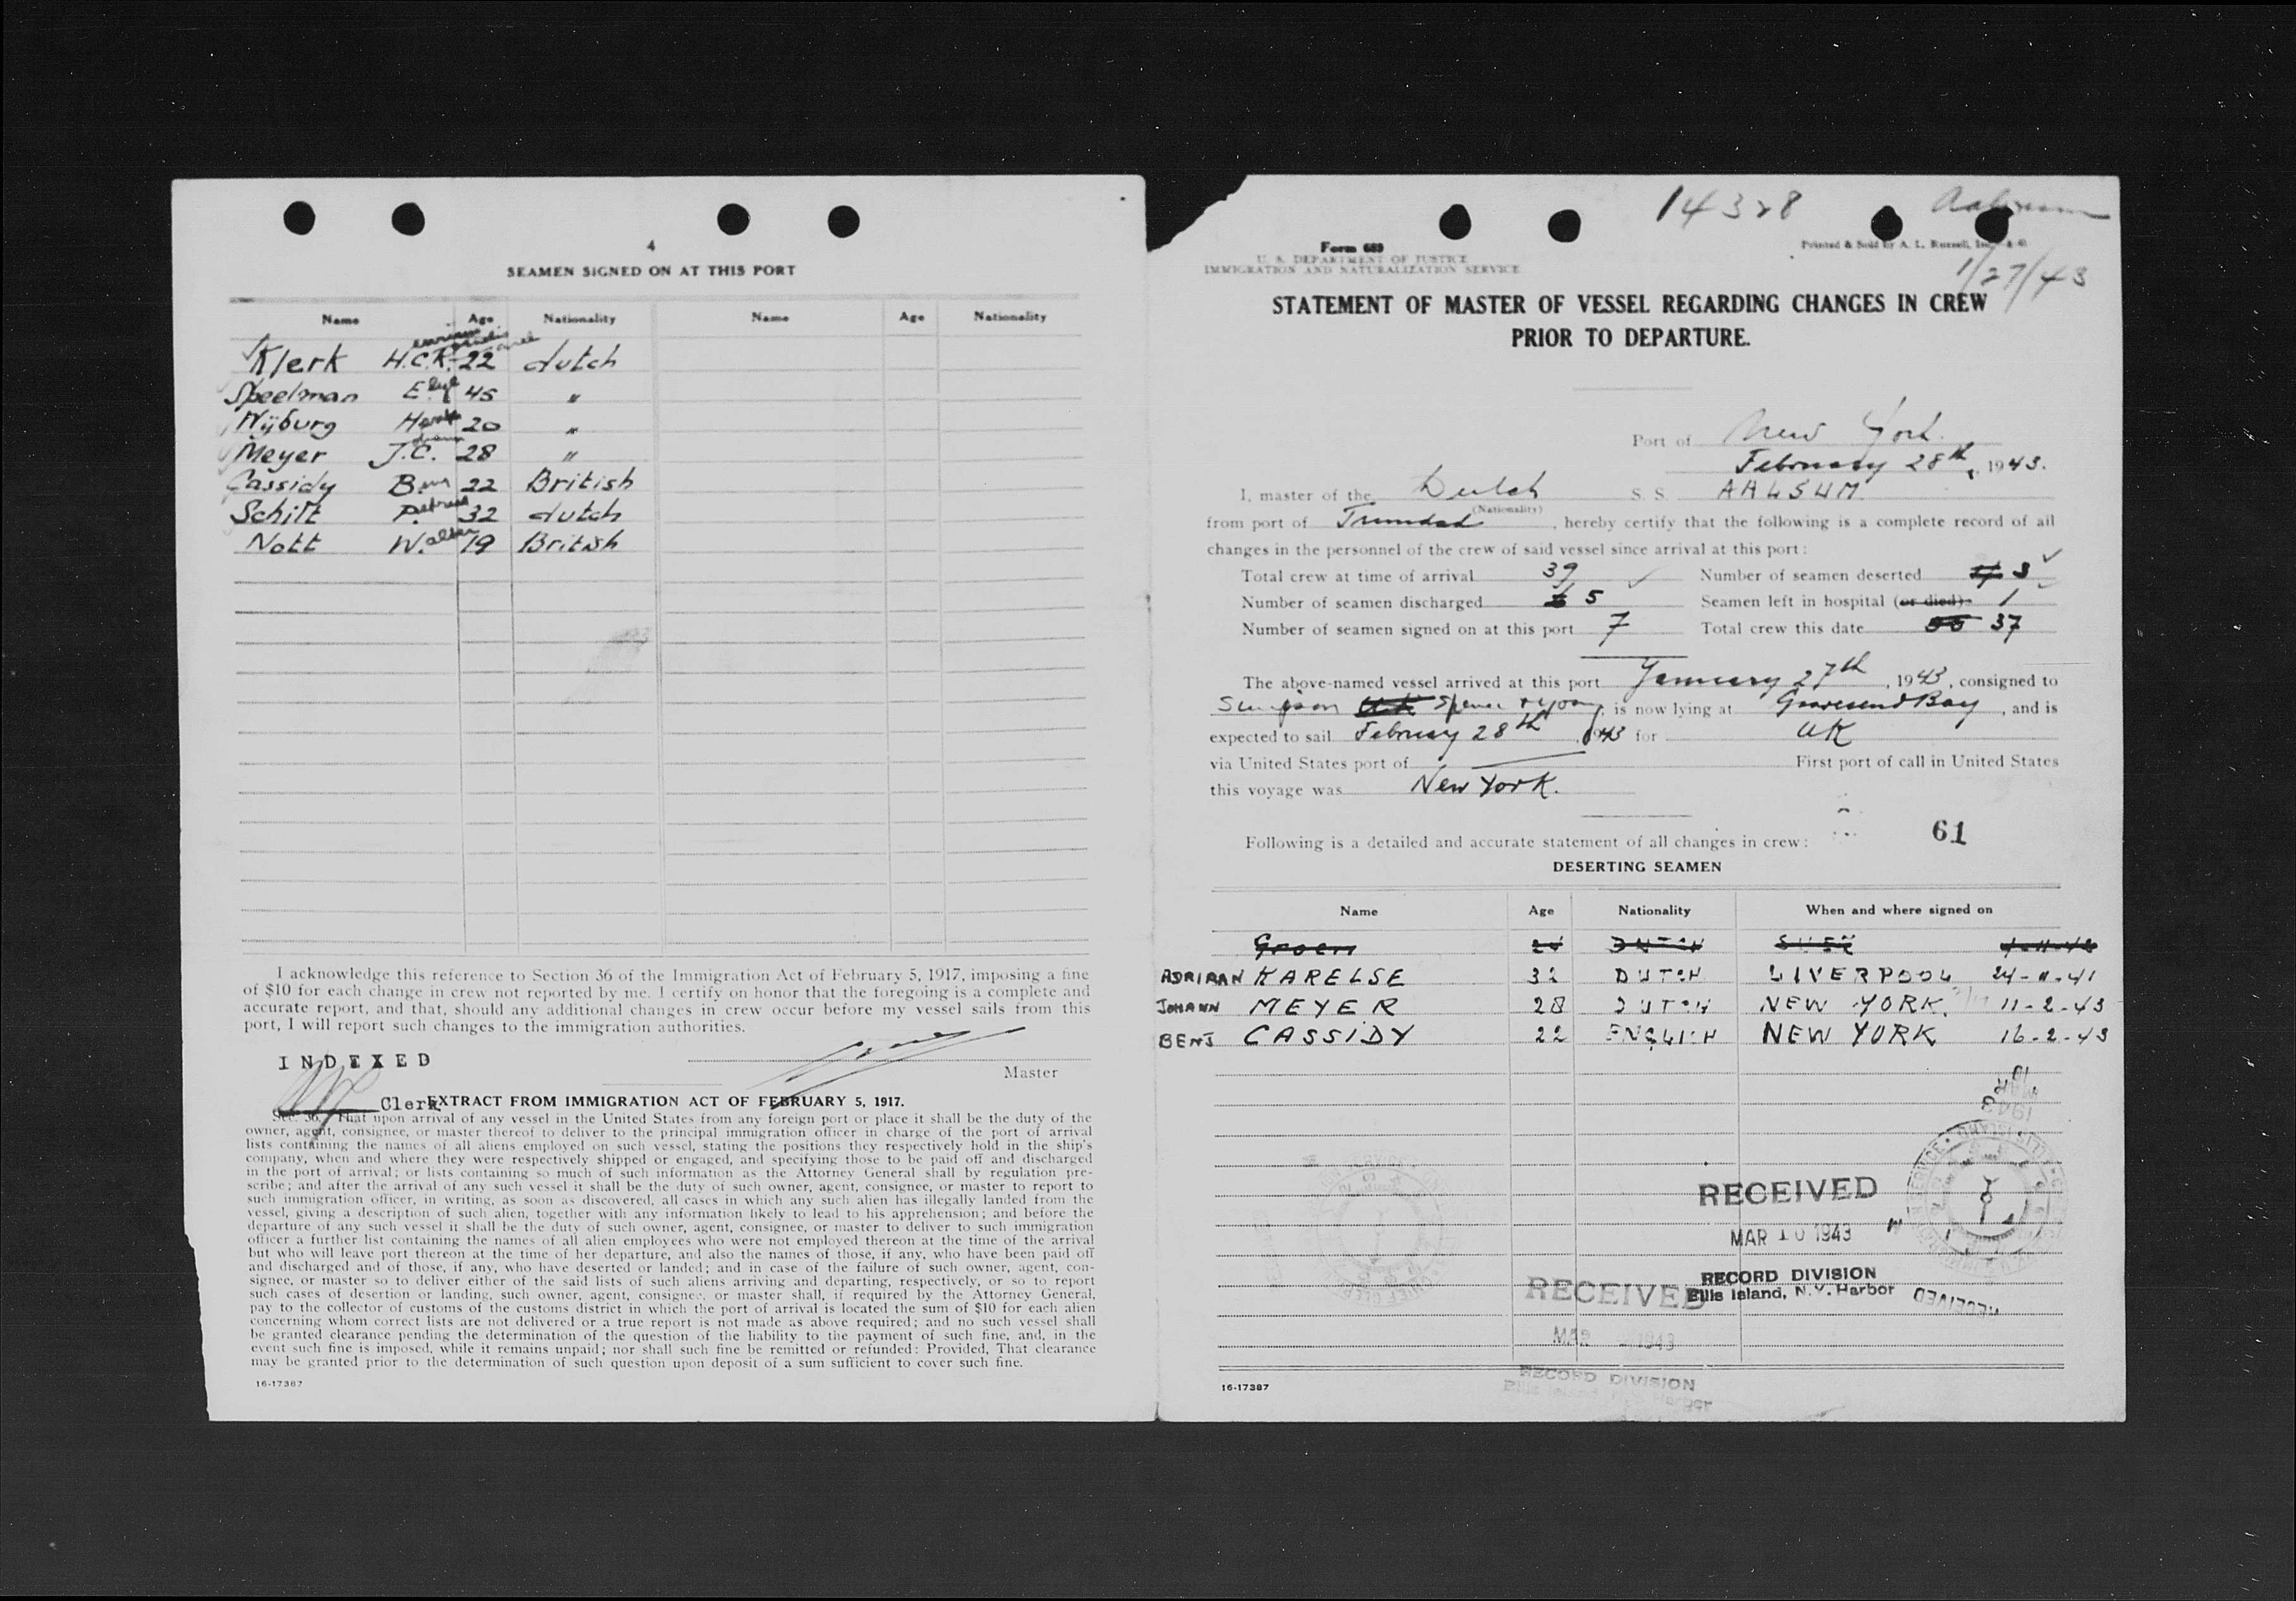 4
SEAMEN SIGNED ON AT THIS PORT
Name Age Nationality Name Age Nationality
Klerk H.C.R. 22 dutch
Speelman E. 45 "
Wijburg Henk 20 "
Meyer J.C. 28 "
Cassidy Benj 22 British
Schilt P. 32 dutch
Nott Walter 19 British
I acknowledge this reference to Section 36 of the Immigration Act of February 5, 1917, imposing a fine
of $10 for each change in crew not reported by me. I certify on honor that the foregoing is a complete and
accurate report, and that, should any additional changes in crew occur before my vessel sails from this
port, I will report such changes to the immigration authorities.
INDEXED
Master
Clerk
EXTRACT FROM IMMIGRATION ACT OF FEBRUARY 5, 1917.
Sec. 36. That upon arrival of any vessel in the United States from any foreign port or place it shall be the duty of the
owner, agent, consignee, or master thereof to deliver to the principal immigration officer in charge of the port of arrival
lists containing the names of all aliens employed on such vessel, stating the positions they respectively hold in the ship's
company, when and where they were respectively shipped or engaged, and specifying those to be paid off and discharged
in the port of arrival; or lists containing so much of such information as the Attorney General shall by regulation pre-
scribe; and after the arrival of any such vessel it shall be the duty of such owner, agent, consignee, or master to report to
such immigration officer, in writing, as soon as discovered, all cases in which any such alien has illegally landed from the
vessel, giving a description of such alien, together with any information likely to lead to his apprehension; and before the
departure of any such vessel it shall be the duty of such owner, agent, consignee, or master to deliver to such immigration
officer a further list containing the names of all alien employees who were not employed thereon at the time of the arrival
but who will leave port thereon at the time of her departure, and also the names of those, if any, who have been paid off
and discharged and of those, if any, who have deserted or landed; and in case of the failure of such owner, agent, con-
signee, or master so to deliver either of the said lists of such aliens arriving and departing, respectively, or so to report
such cases of desertion or landing, such owner, agent, consignee, or master shall, if required by the Attorney General,
pay to the collector of customs of the customs district in which the port of arrival is located the sum of $10 for each alien
concerning whom correct lists are not delivered or a true report is not made as above required; and no such vessel shall
be granted clearance pending the determination of the question of the liability to the payment of such fine, and, in the
event such fine is imposed, while it remains unpaid; nor shall such fine be remitted or refunded: Provided, That clearance
may be granted prior to the determination of such question upon deposit of a sum sufficient to cover such fine.
16-17387
14328
Form 689
U. S. DEPARTMENT OF JUSTICE
IMMIGRATION AND NATURALIZATION SERVICE
Printed & Sold by A. L. Russell, Inc.
1/27/43
STATEMENT OF MASTER OF VESSEL REGARDING CHANGES IN CREW
PRIOR TO DEPARTURE.
Port of New York.
February 28th, 1943.
I, master of the Dutch S. S. AALSUM
(Nationality)
from port of Trinidad, hereby certify that the following is a complete record of all
changes in the personnel of the crew of said vessel since arrival at this port:
Total crew at time of arrival 39 Number of seamen deserted 3
Number of seamen discharged 5 Seamen left in hospital (or died) 1
Number of seamen signed on at this port 7 Total crew this date 37
The above-named vessel arrived at this port January 27th, 1943, consigned to
Simpson Spence & Young, is now lying at Gravesend Bay, and is
expected to sail February 28th 1943 for UK
via United States port of First port of call in United States
this voyage was New York.
Following is a detailed and accurate statement of all changes in crew: 61
DESERTING SEAMEN
Name Age Nationality When and where signed on
Groen 24 DUTCH
ADRIAAN KARELSE 32 DUTCH LIVERPOOL 24-11-41
JOHANN MEYER 28 DUTCH NEW YORK. 11-2-43
BENJ CASSIDY 22 ENGLISH NEW YORK 16-2-43
RECEIVED
MAR 10 1943
RECORD DIVISION
Ellis Island, N.Y. Harbor
RECEIVED
MAR 1943
RECORD DIVISION
RECEIVED
16-17387